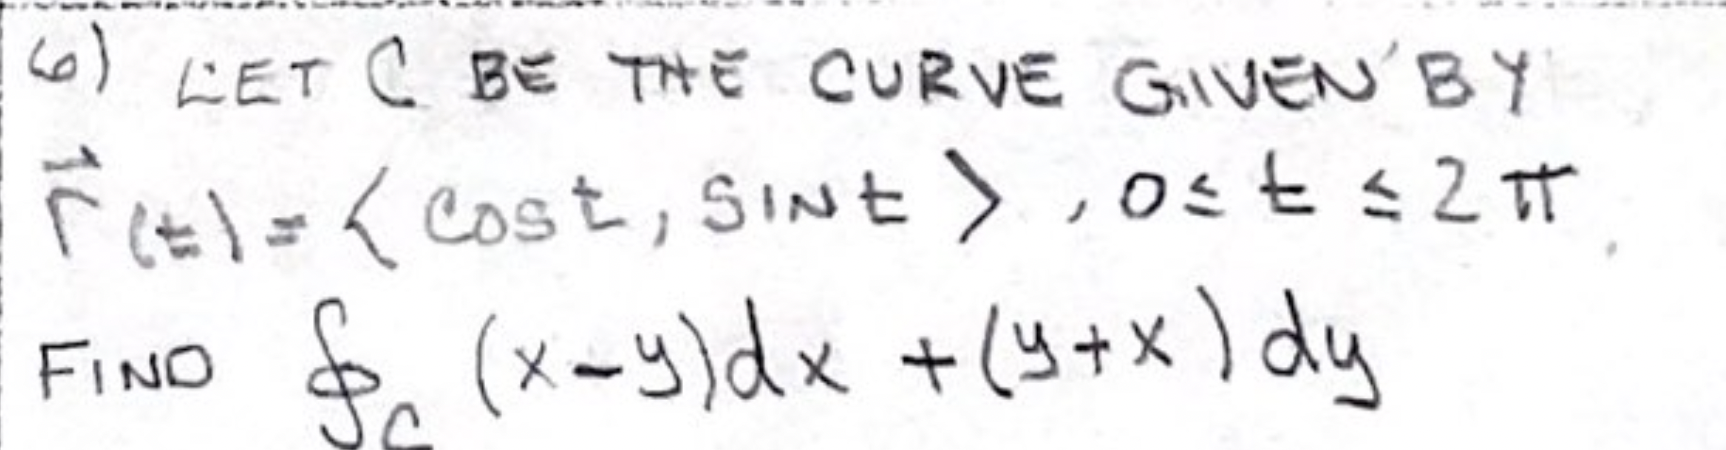 6) LET C BE THE CURVE GIVEN BY
r⃗(t) = < cost, SINt >, 0 ≤ t ≤ 2π.
FIND ∮_C (x-y)dx + (y+x)dy